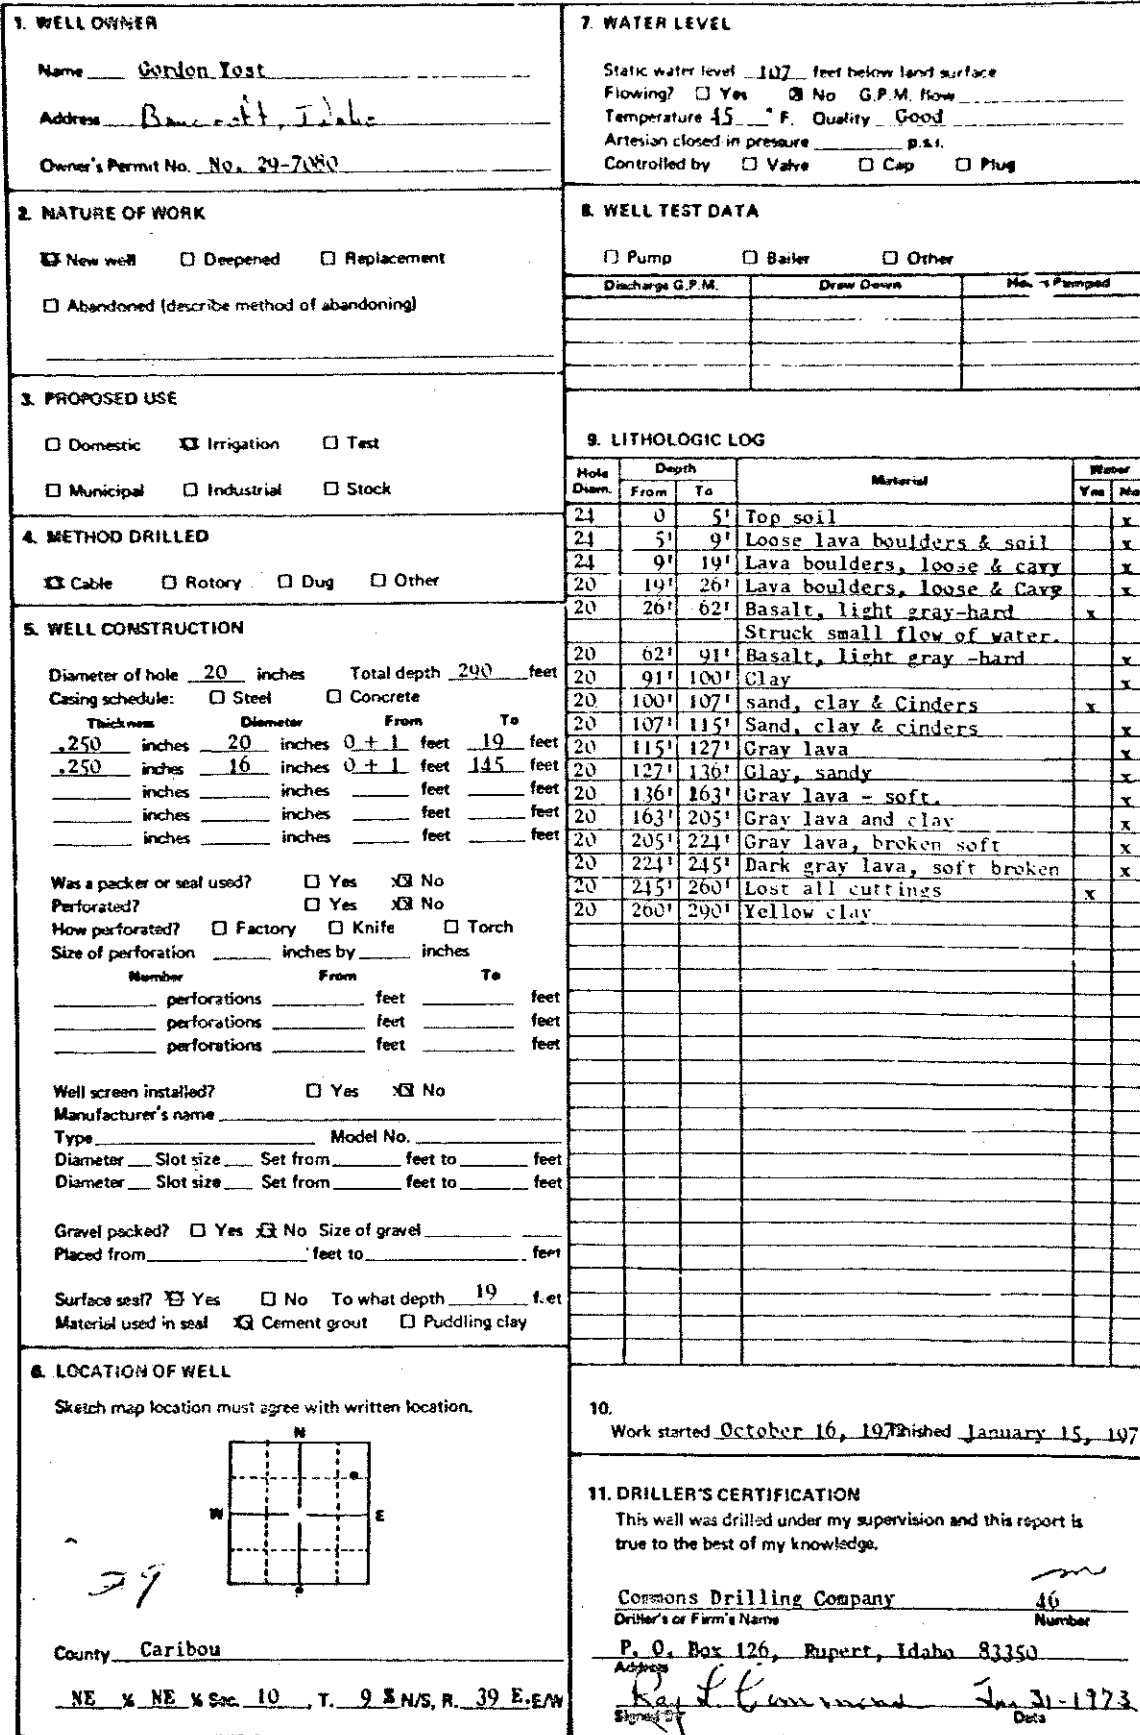 1. WELL OWNER
Name Gordon Yost
Address Bancroft, Idaho
Owner's Permit No. No. 29-7080
2. NATURE OF WORK
New well Deepened Replacement
Abandoned (describe method of abandoning)
3. PROPOSED USE
Domestic Irrigation Test
Municipal Industrial Stock
4. METHOD DRILLED
Cable Rotory Dug Other
5. WELL CONSTRUCTION
Diameter of hole 20 inches Total depth 290 feet
Casing schedule: Steel Concrete
Thickness Diameter From To
.250 inches 20 inches 0 + 1 feet 19 feet
.250 inches 16 inches 0 + 1 feet 145 feet
inches inches feet feet
inches inches feet feet
inches inches feet feet
Was a packer or seal used? Yes x No
Perforated? Yes x No
How perforated? Factory Knife Torch
Size of perforation inches by inches
Number From To
perforations feet feet
perforations feet feet
perforations feet feet
Well screen installed? Yes x No
Manufacturer's name
Type Model No.
Diameter Slot size Set from feet to feet
Diameter Slot size Set from feet to feet
Gravel packed? Yes x No Size of gravel
Placed from feet to feet
Surface seal? Yes No To what depth 19 feet
Material used in seal Cement grout Puddling clay
6. LOCATION OF WELL
Sketch map location must agree with written location.
N
W E
29
County Caribou
NE ¼ NE ¼ Sec. 10, T. 9 S N/S, R. 39 E. E/W
7. WATER LEVEL
Static water level 107 feet below land surface
Flowing? Yes No G.P.M. flow
Temperature 45 °F. Quality Good
Artesian closed-in pressure p.s.i.
Controlled by Valve Cap Plug
8. WELL TEST DATA
Pump Bailer Other
Discharge G.P.M. Draw Down Pumped
9. LITHOLOGIC LOG
Hole Diam. Depth Material Water
From To Yes No
24 0 5' Top soil x
24 5' 9' Loose lava boulders & soil x
24 9' 19' Lava boulders, loose & cavy x
20 19' 26' Lava boulders, loose & Cavy x
20 26' 62' Basalt, light gray-hard x
Struck small flow of water.
20 62' 91' Basalt, light gray -hard x
20 91' 100' Clay x
20 100' 107' sand, clay & Cinders x
20 107' 115' Sand, clay & cinders x
20 115' 127' Gray lava x
20 127' 136' Clay, sandy x
20 136' 163' Gray lava - soft. x
20 163' 205' Gray lava and clay x
20 205' 224' Gray lava, broken soft x
20 224' 245' Dark gray lava, soft broken x
20 245' 260' Lost all cuttings x
20 260' 290' Yellow clay
10.
Work started October 16, 1972 finished January 15, 197
11. DRILLER'S CERTIFICATION
This well was drilled under my supervision and this report is
true to the best of my knowledge.
Commons Drilling Company 46
Driller's or Firm's Name Number
P. O. Box 126, Rupert, Idaho 83350
Address
Ray L. Commons Jan 31-1973
Signed By Date